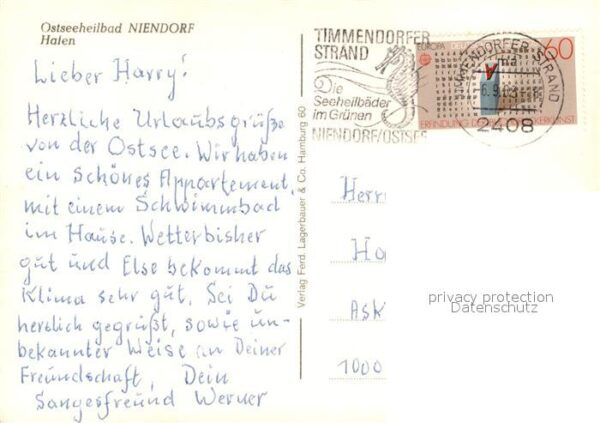 Ostseeheilbad NIENDORF
Hafen
Lieber Harry!
Herzliche Urlaubsgrüße
von der Ostsee. Wir haben
ein schönes Appartement,
mit einem Schwimmbad
im Hause. Wetter bisher
gut und Else bekommt das
Klima sehr gut. Sei Du
herzlich gegrüßt, sowie un-
bekannter Weise an Deiner
Freundschaft, Dein
Sangesfreund Werner
Verlag Ferd. Lagerbauer & Co. Hamburg 60
TIMMENDORFER
STRAND
Die
Seeheilbäder
im Grünen
NIENDORF/OSTSEE
EUROPA
60
TIMMENDORFER STRAND
2408
ERFINDUNG
Herr
Ha
Ask
1000
privacy protection
Datenschutz